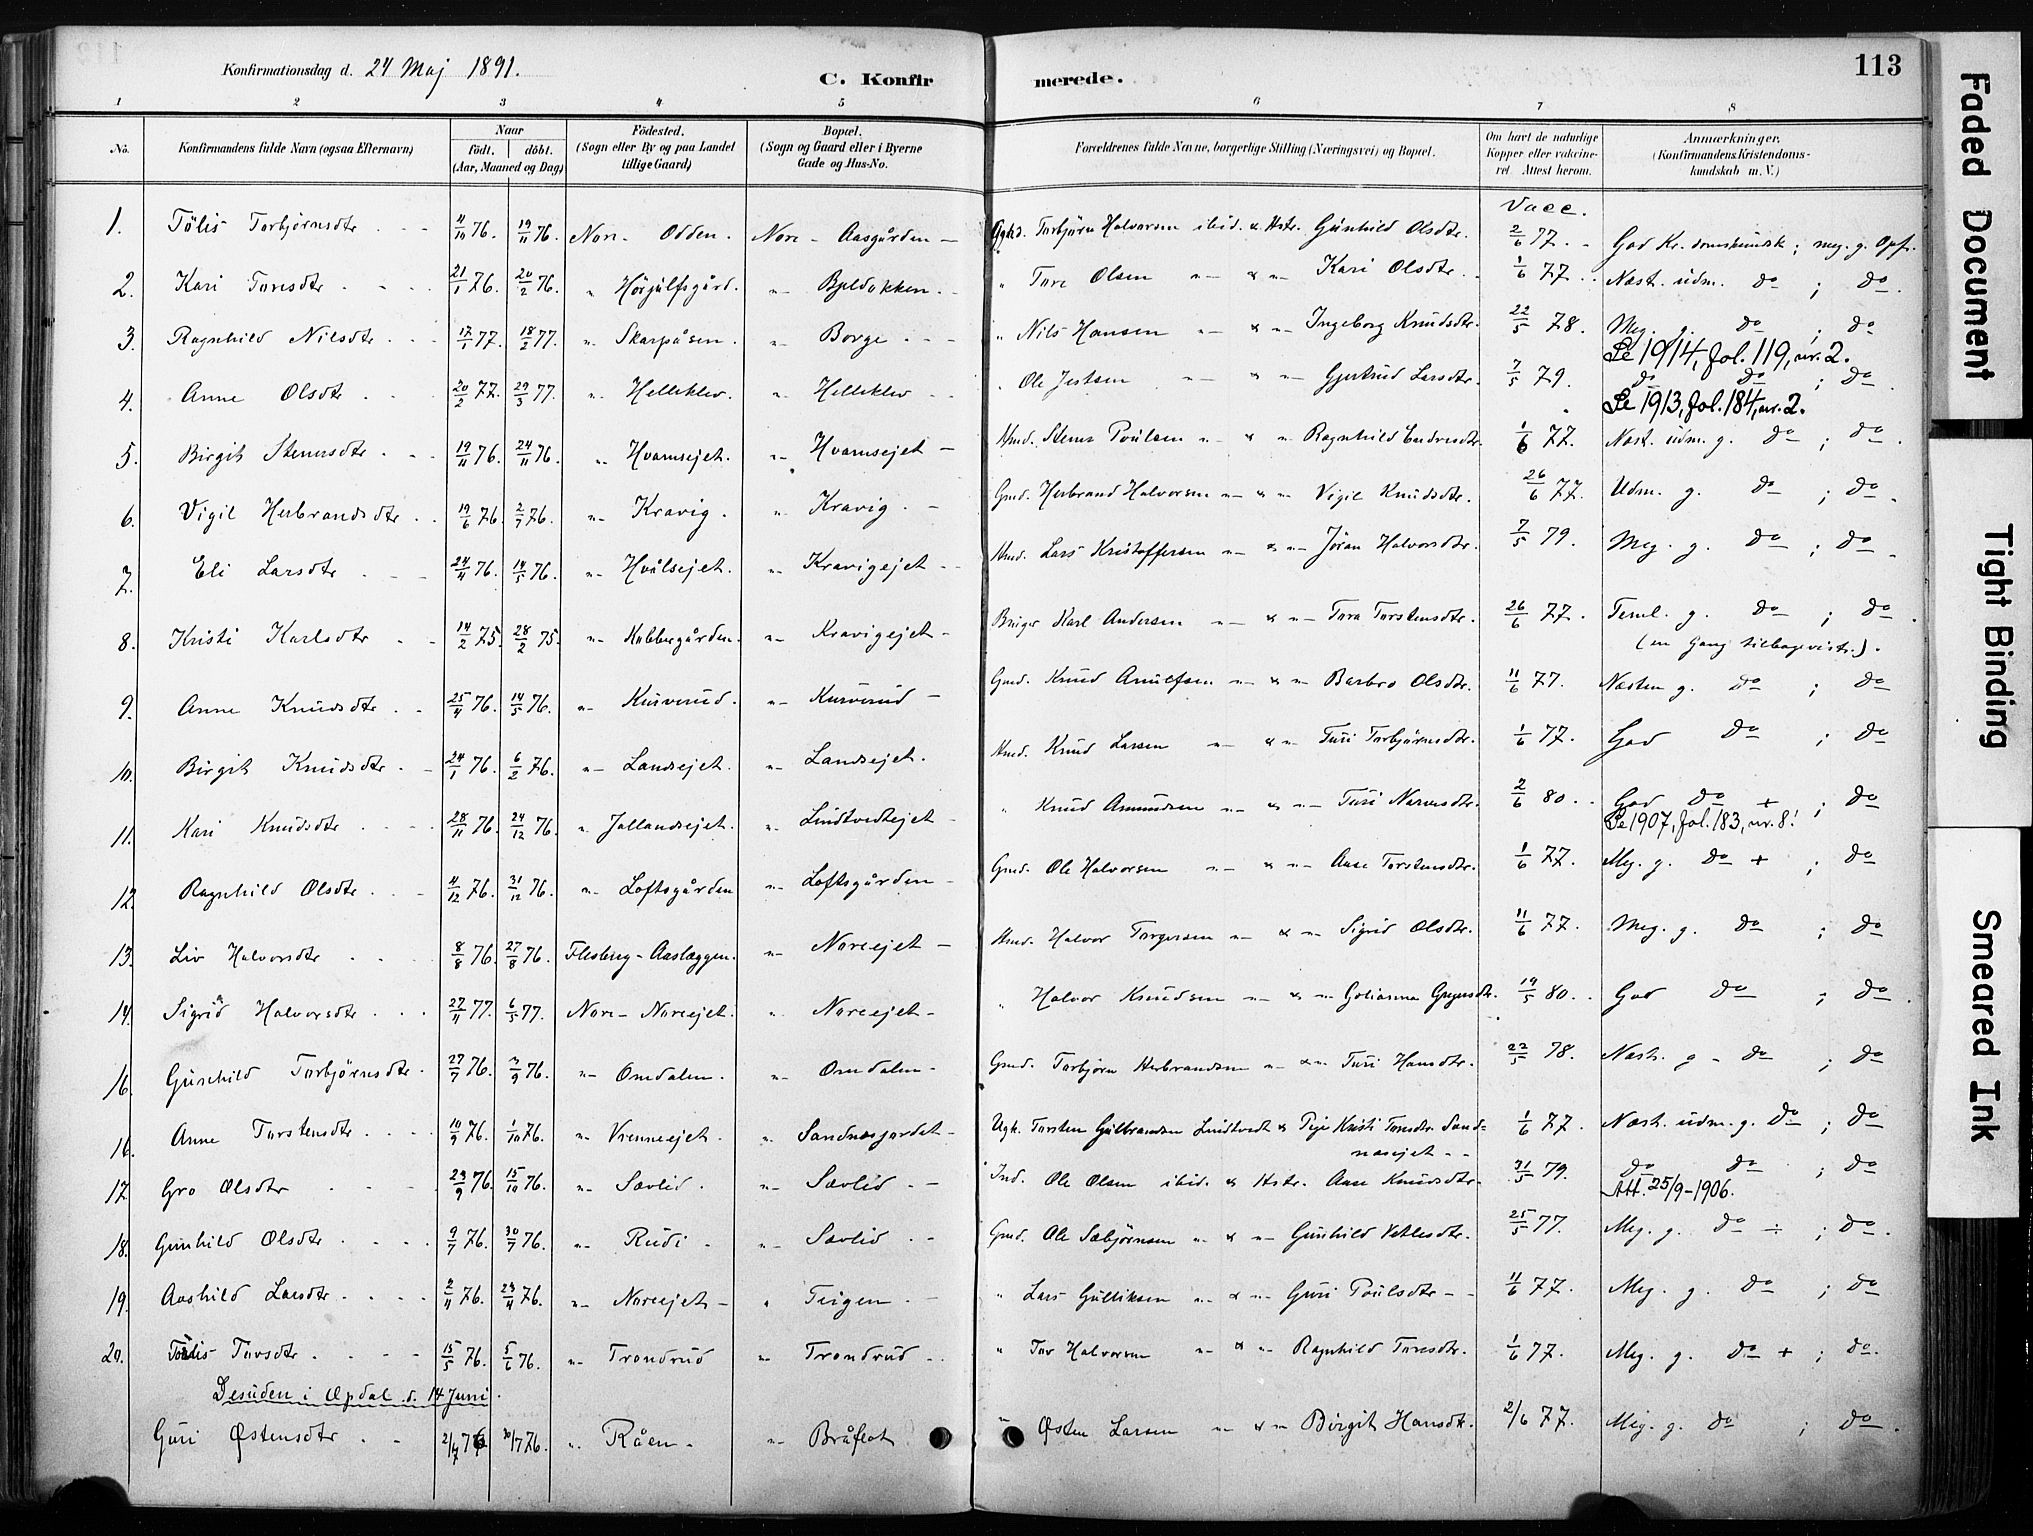 Konfirmationsdag d. 24 Maj 1891.
C. Konfirmerede.
113
1 2 3 4 5 6 7 8
No. Konfirmandens fulde Navn (ogsaa Efternavn) Naar født. døbt. (Aar, Maaned og Dag) Födested. (Sogn eller By og paa Landet tillige Gaard) Bopæl. (Sogn og Gaard eller i Byerne Gade og Hus-No. Forældrenes fulde Navne, borgerlige Stilling (Næringsvei) og Bopæl. Om havt de naturlige Kopper eller vakcineret. Attest herom. Anmærkninger. (Konfirmandens Kristendomskundskab m. V.)
Vacc.
1. Tölis Torbjörnsdtr 4/10 76. 19/11 76. Nore - Odden. Nore - Aasgården Torbjörn Halvorsen ibid. & Hstr. Günhild Olsdtr. 2/6 77. God Kr. domskundsk; meg. g. Opf.
2. Kari Toresdtr 21/1 76. 20/2 76. " Hörjülfsgård. " Bjeldokken. " Tore Olsen " & " Kari Olsdtr. 1/6 77. Næst. udm. do ; do.
3. Ragnhild Nilsdtr 17/1 77. 18/2 77. " Skarpåsen. " Borge " Nils Hansen " & " Ingeborg Knudsdtr. 22/5 78. Meg. g. do ; do
Se 1914, fol. 119, nr. 2.
4. Anne Olsdtr 20/2 77. 29/3 77. " Helleklev. " Helleklev " Ole Jestsen " & " Gjertrud Larsdtr. 7/5 79. do do ; do
Se 1913, fol. 184, nr. 2.
5. Birgit Stenersdtr 19/11 76. 24/11 76. " Hvamsejet. " Hvamsejet Hmd. Stener Poulsen " & " Ragnhild Endresdtr. 1/6 77. Næst. udm. g. do ; do
6. Vigil Herbrandsdtr 19/6 76. 2/7 76. " Kravig. " Kravig. Gmd. Herbrand Halvorsen " & " Vigil Knudsdtr. 26/6 77. Udm. g. do ; do.
7. Eli Larsdtr 24/4 76. 14/5 76. " Hvålsejet. " Kravigejet Hmd. Lars Kristoffersen " & " Jöran Halvorsdtr. 7/5 79. Meg. g. do ; do
8. Kristi Karlsdtr 14/2 75. 28/2 75. " Kobbergården. " Kravigejet Karl Andersen " & " Tora Torstensdtr. 26/6 77. Teml. g. do ; do
(en Gang tilbagevist.).
9. Anne Knudsdtr 25/4 76. 14/5 76. " Kusverud. " Kusverud Gmd. Knud Anulfsen " & " Barbro Olsdtr. 11/6 77. Næsten g. do ; do
10. Birgit Knudsdtr 24/1 76. 6/2 76. " Landsejet. " Landsejet. Hmd. Knud Larsen " & " Turi Torbjörnsdtr. 1/6 77. God do ; do
11. Kari Knudsdtr 28/11 76. 24/12 76. " Jallandsejet. " Lindtvedtejet " Knud Amundsen " & " Turi Narvesdtr. 2/6 80. God do + ; do
Se 1907, fol. 183, nr. 8!
12. Ragnhild Olsdtr 4/12 76. 31/12 76. " Loftsgården " Loftsgården Gmd. Ole Halvorsen " & " Aase Torstensdtr. 1/6 77. Meg. g. do + ; do
13. Liv Halvorsdtr 8/8 76. 27/8 76. Flesberg - Aaslæggen. " Noreejet Hmd. Halvor Torgersen " & " Sigrid Olsdtr. 11/6 77. Meg. g. do ; do
14. Sigrid Halvorsdtr 27/11 77. 6/5 77. Nore - Noreejet. " Noreejet " Halvor Knudsen " & " 19/5 80. God do ; do
16. Günhild Torbjörnsdtr. 27/7 76. 3/9 76. " Omdalen. " Omdalen Gmd. Torbjörn Herbrandsen " & " Turi Hansdtr. 22/5 78. Næst. g. do ; do
16. Anne Torstensdtr 10/9 76. 1/10 76. " Vrenneejet. " Sandnæsjordet Ugk. Torsten Gulbrandsen Lindtvedt & Pige Kristi Toresdtr. Sand= 1/6 77. Næst. udm. g. do ; do
næsejet
17. Gro Olsdtr 23/9 76. 15/10 76. " Sævlid. " Sævlid. Ind. Ole Olsen ibid. & Hstr. Aase Knudsdtr. 31/5 79. do do ; do
Att. 25/9-1906.
18. Gunhild Olsdtr 9/7 76. 30/7 76. " Rudi. " Sævlid Gmd. Ole Sæbjörnsen " & " Gunhild Vetlesdtr. 25/5 77. Meg. g. do ÷ ; do.
19. Aashild Larsdtr 2/4 76. 23/4 76. " Noreejet " Teigen. " Lars Gulliksen " & " Guri Poulsdtr 11/6 77. Meg. g. do ; do
20. Tölis Torsdtr 15/5 76. 5/6 76. " Trondrud " Trondrud " Tor Halvorsen " & " Ragnhild Toresdtr. 1/6 77. Meg. g. do + ; do.
Desuden i Opdal d. 14 Juni.
Guri Østensdtr 2/7 76 30/7 76. " Råen " Bråflot " Østen Larsen " & " Birgit Hansdtr. 2/6 77. Meg. g. do ; do
Faded Document
Tight Binding
Smeared Ink